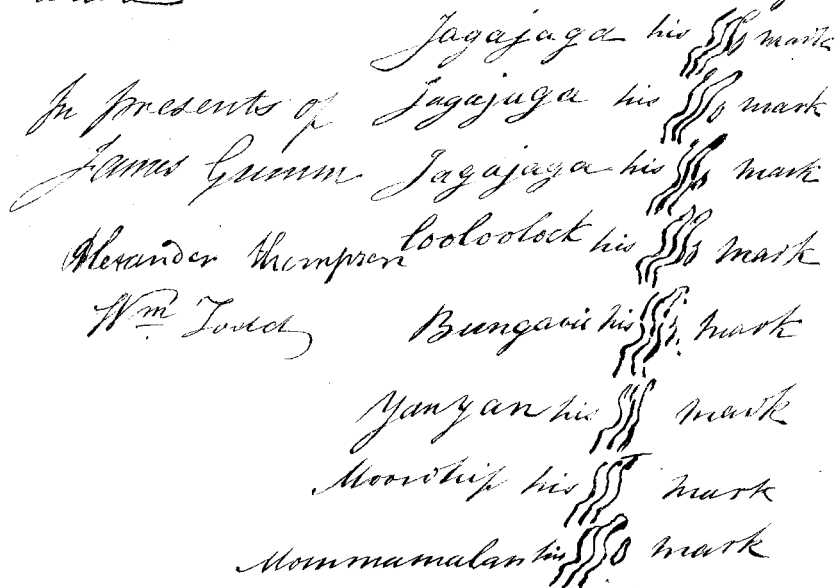 Jagajaga his mark
In presents of Jagajaga his mark
James Gumm Jagajaga his mark
Alexander Thompson Cooloolock his mark
Wm Todd Bungarie his mark
Yanyan his mark
Moowhip his mark
Mommamalan his mark